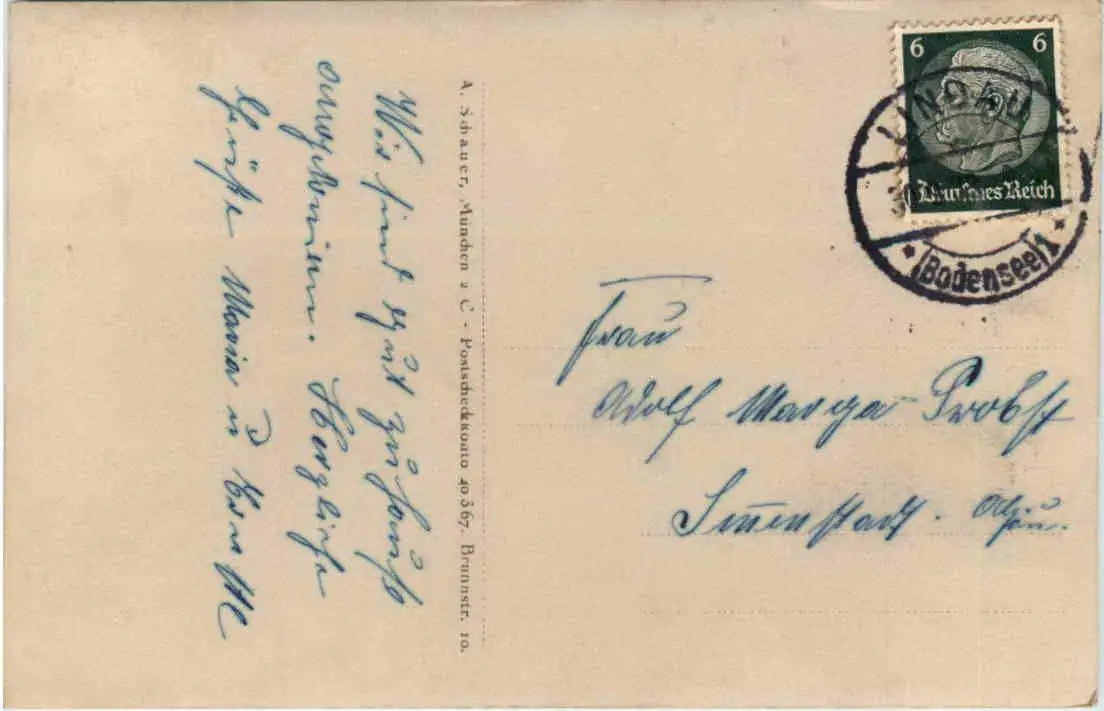 Wir sind gut zu Hause
angekommen. Herzliche
Grüße Maria u.
A. Schauer, München 2 C - Postscheckkonto 40367. Brunnstr. 10.
6 6
Deutsches Reich
LINDAU
(Bodensee) 1
Frau
Adolf Marga Probst
Immenstadt. Allgäu.